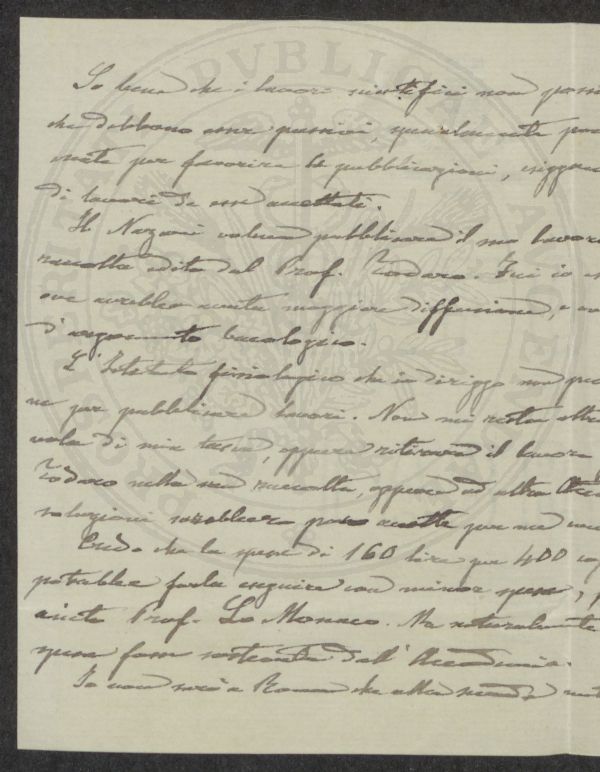 So bene che i lavori scientifici non poss
che debbono esser passivi, specialmente
per favorire le pubblicazioni, esiggono
di lavori da essi accettati.
Il Nazari voleva pubblicare il suo lavoro
raccolta edita dal Prof. Todaro. Fui io
ove avrebbe avuta maggiore diffusione, e
d'argomento bacologico.
L'Istituto fisiologico che io dirigo non può
ne per pubblicare lavori. Non mi resta altro
vola di mia tasca, oppure ritirare il lavoro
Todaro nella sua raccolta, oppure ad altra
soluzioni sarebbero poco accette per me
Credo che la spesa di 160 lire per 400 cop
potrebbe farla eseguire con minor spesa,
Prof. Lo Monaco. Ma naturalmente
spesa fosse sostenuta dall'Accademia.
Io non sarò a Roma che alla seconda met